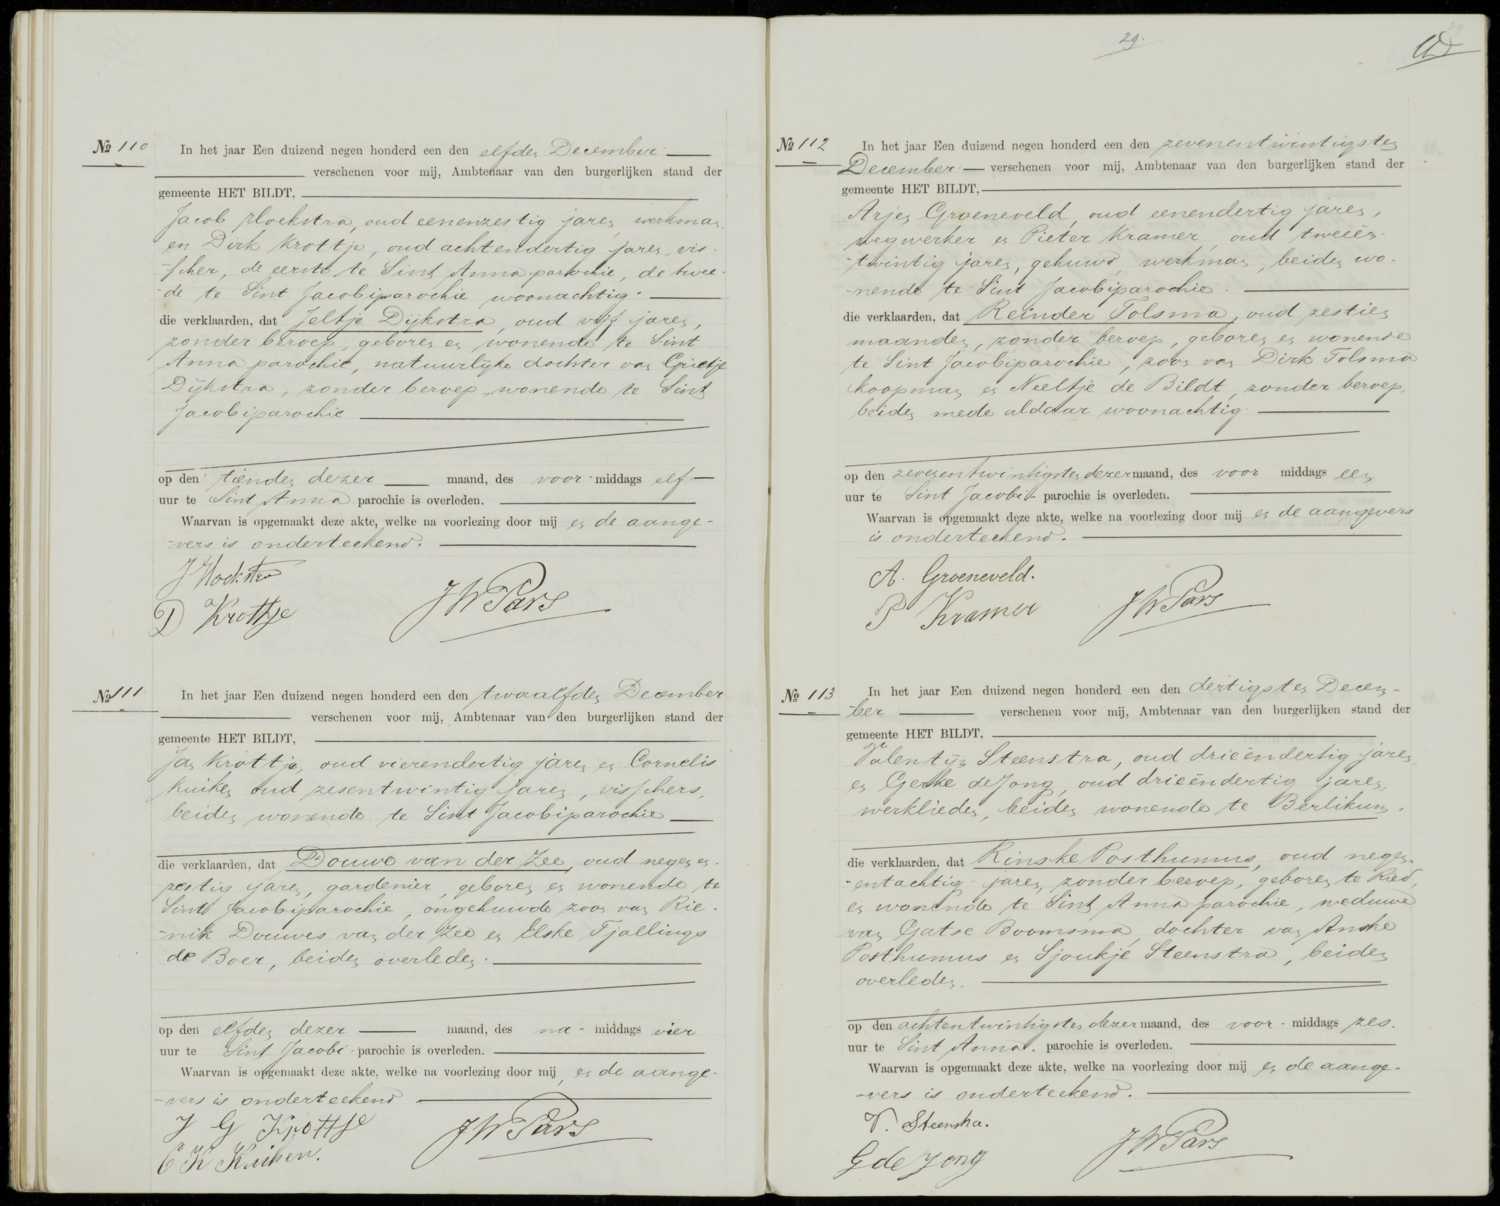 № 110
In het jaar Een duizend negen honderd een den elfden December
verschenen voor mij, Ambtenaar van den burgerlijken stand der
gemeente HET BILDT,
Jacob Hoekstra, oud eenenzestig jaren, werkman
en Dirk Krottje, oud achtendertig jaren, vis-
scher, de eerste te Sint Anna parochie, de twee-
de te Sint Jacobiparochie woonachtig.
die verklaarden, dat Jeltje Dijkstra, oud vijf jaren,
zonder beroep, geboren en wonende te Sint
Anna parochie, natuurlijke dochter van Grietje
Dijkstra, zonder beroep wonende te Sint
Jacobiparochie
op den tienden dezer maand, des voor middags elf
uur te Sint Anna parochie is overleden.
Waarvan is opgemaakt deze akte, welke na voorlezing door mij en de aange-
vers is onderteekend.
J Hoekstra
D Krottje
JWPars
№ 111
In het jaar Een duizend negen honderd een den twaalfden December
verschenen voor mij, Ambtenaar van den burgerlijken stand der
gemeente HET BILDT,
Jan Krottje, oud vierendertig jaren en Cornelis
Kuiken oud zesentwintig jaren, visschers,
beiden wonende te Sint Jacobiparochie
die verklaarden, dat Douwe van der Zee, oud negen en-
zestig jaren, gardenier, geboren en wonende te
Sint Jacobiparochie, ongehuwde zoon van Rie-
nik Douwes van der Zee en Elske Tjallings
de Boer, beiden overleden.
op den elfden dezer maand, des na- middags vier
uur te Sint Jacobi- parochie is overleden.
Waarvan is opgemaakt deze akte, welke na voorlezing door mij, en de aange-
vers is onderteekend
J G Krottje
C K Kuiken.
JWPars
29.
№ 112
In het jaar Een duizend negen honderd een den zevenentwintigsten
December verschenen voor mij, Ambtenaar van den burgerlijken stand der
gemeente HET BILDT,
Arjen Groeneveld, oud eenendertig jaren,
wegwerker en Pieter Kramer, oud tweeën-
twintig jaren, gehuwd, werkman, beiden wo-
nende te Sint Jacobiparochie.
die verklaarden, dat Reinder Tolsma, oud zestien
maanden, zonder beroep, geboren en wonende
te Sint Jacobiparochie, zoon van Dirk Tolsma
koopman en Neeltje de Bildt, zonder beroep,
beiden mede aldaar woonachtig
op den zevenentwintigsten dezer maand, des voor middags een
uur te Sint Jacobi- parochie is overleden.
Waarvan is opgemaakt deze akte, welke na voorlezing door mij en de aangevers
is onderteekend.
A. Groeneveld.
P Kramer
JWPars
№ 113
In het jaar Een duizend negen honderd een den dertigsten Decem-
ber verschenen voor mij, Ambtenaar van den burgerlijken stand der
gemeente HET BILDT,
Valentijn Steenstra, oud drieëndertig jaren
en Gerke de Jong, oud drieëndertig jaren,
werklieden, beiden wonende te Berlikum.
die verklaarden, dat Rinske Posthumus, oud negen-
entachtig jaren, zonder beroep, geboren te Ried,
en wonende te Sint Anna parochie, weduwe
van Gatse Boomsma, dochter van Anske
Posthumus en Sjoukje Steenstra, beiden
overleden.
op den achtentwintigsten dezer maand, des voor- middags zes.
uur te Sint Anna. parochie is overleden.
Waarvan is opgemaakt deze akte, welke na voorlezing door mij en de aange-
vers is onderteekend.
V. Steenstra.
G de Jong
JWPars